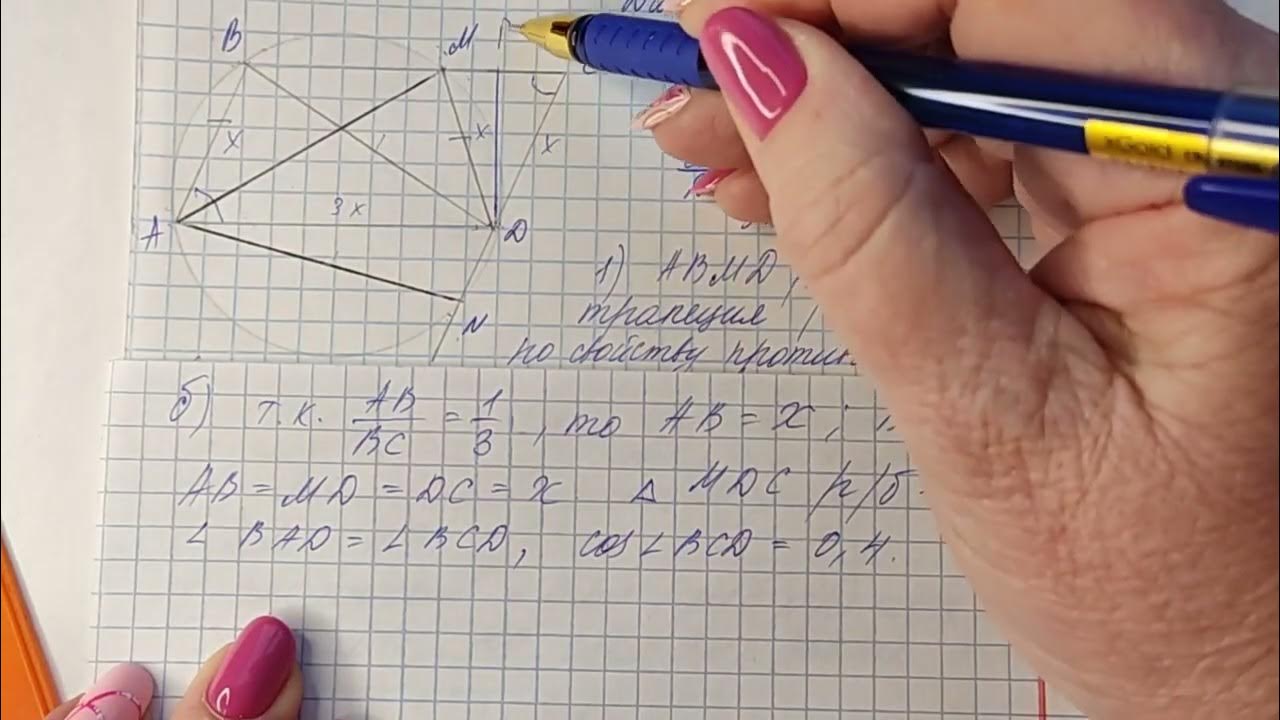 B M
x x x
3x
A D
N
1) ABMD,
трапеция
по свойству против
б) т.к. AB/BC = 1/3, то AB = x;
AB = MD = DC = x △ MDC р/б
∠ BAD = ∠ BCD, cos∠BCD = 0,4.